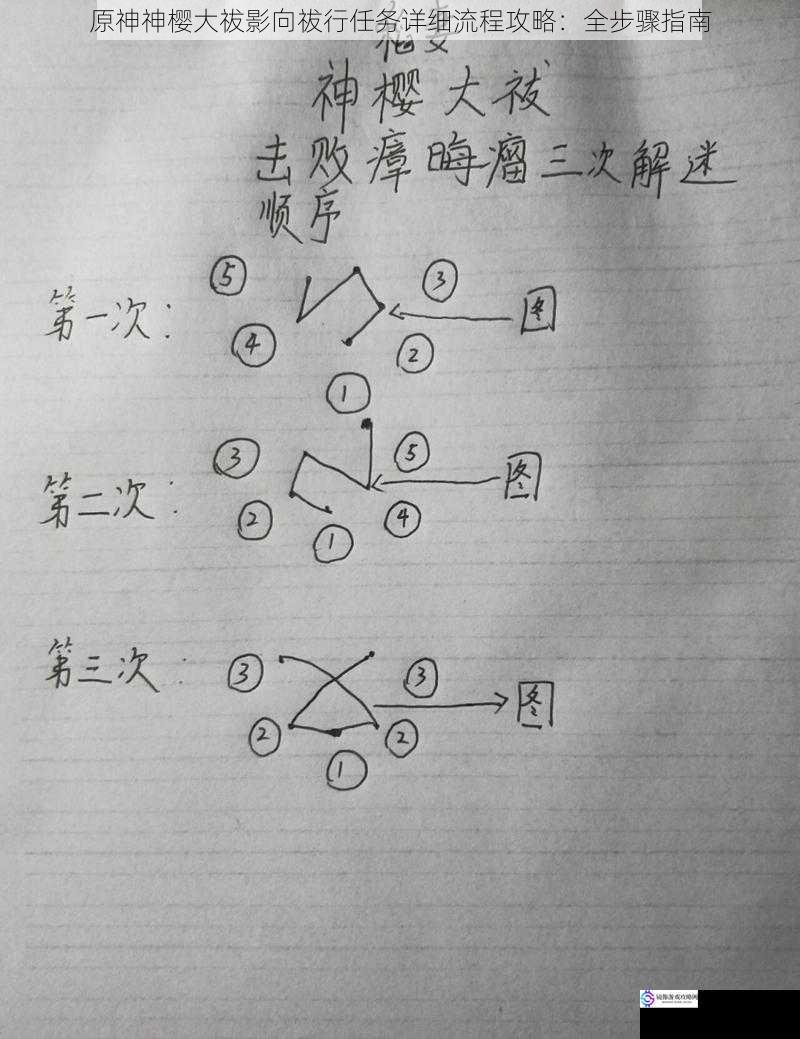 原神神樱大祓影向祓行任务详细流程攻略：全步骤指南
神樱大祓
击败瘴晦瘤三次解迷
顺序
第一次：
⑤ ③
④ ② 图
①
第二次：
③ ⑤ 图
② ④
①
第三次：
③ ③ 图
② ②
①